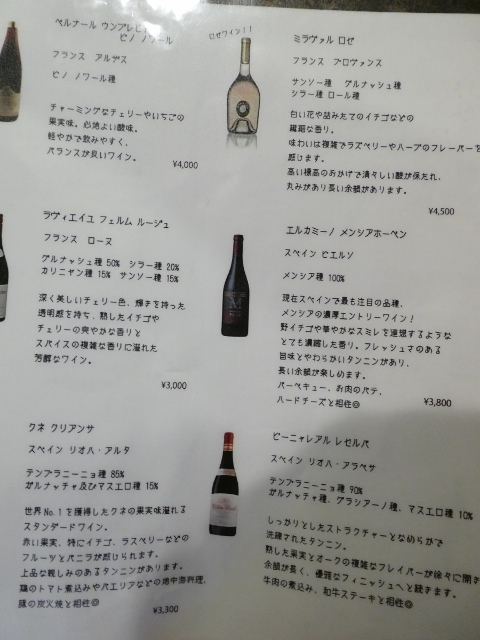 ベルナール ウンアレビト
ピノ ノワール
フランス アルデス
ピノ ノワール種
チャーミングなチェリーやいちごの
果実味。心地よい酸味。
軽やかで飲みやすく、
バランスが良いワイン。
¥4,000
ロゼワイン!!
ミラヴァル ロゼ
フランス プロヴァンス
サンソー種 グルナッシュ種
シラー種 ロール種
白い花や詰みたてのイチゴなどの
繊細な香り。
味わいは複雑でラズベリーやハーブのフレーバーを
感じます。
高い標高のおかげで清々しい酸が保たれ、
丸みがあり長い余韻があります。
¥4,500
ラヴィエイユ フェルム ルージュ
フランス ローヌ
グルナッシュ種 50% シラー種 20%
カリニャン種 15% サンソー種 15%
深く美しいチェリー色、輝きを持った
透明感を持ち、熟したイチゴや
チェリーの爽やかな香りと
スパイスの複雑な香りに溢れた
芳醇なワイン。
¥3,000
エルカミーノ メンシアホーベン
スペイン ビエルソ
メンシア種 100%
現在スペインで最も注目の品種、
メンシアの濃厚エントリーワイン!
野イチゴや華やかなスミレを連想するような
とても凝縮した香り。フレッシュさのある
旨味とやわらかいタンニンがあり、
長い余韻が楽しめます。
バーベキュー、お肉のパテ、
ハードチーズと相性◎
¥3,800
クネ クリアンサ
スペイン リオハ・アルタ
テンプラニーニョ種 85%
ガルナッチャ及びマスエロ種 15%
世界No.1を獲得したクネの果実味溢れる
スタンダードワイン。
赤い果実、特にイチゴ、ラズベリーなどの
フルーツとバニラが感じられます。
上品な親しみのあるタンニンがあります。
鶏のトマト煮込みやパエリアなどの地中海料理、
豚の炭火焼と相性◎
¥3,300
ビーニャレアル レセルバ
スペイン リオハ・アラベサ
テンプラニーニョ種 90%
ガルナッチャ種、グラシアーノ種、マスエロ種 10%
しっかりとしたストラクチャーとなめらかで
洗練されたタンニン。
熟した果実とオークの複雑なフレイバーが徐々に開き
余韻が長く、優雅なフィニッシュへと続きます。
牛肉の煮込み、和牛ステーキと相性◎